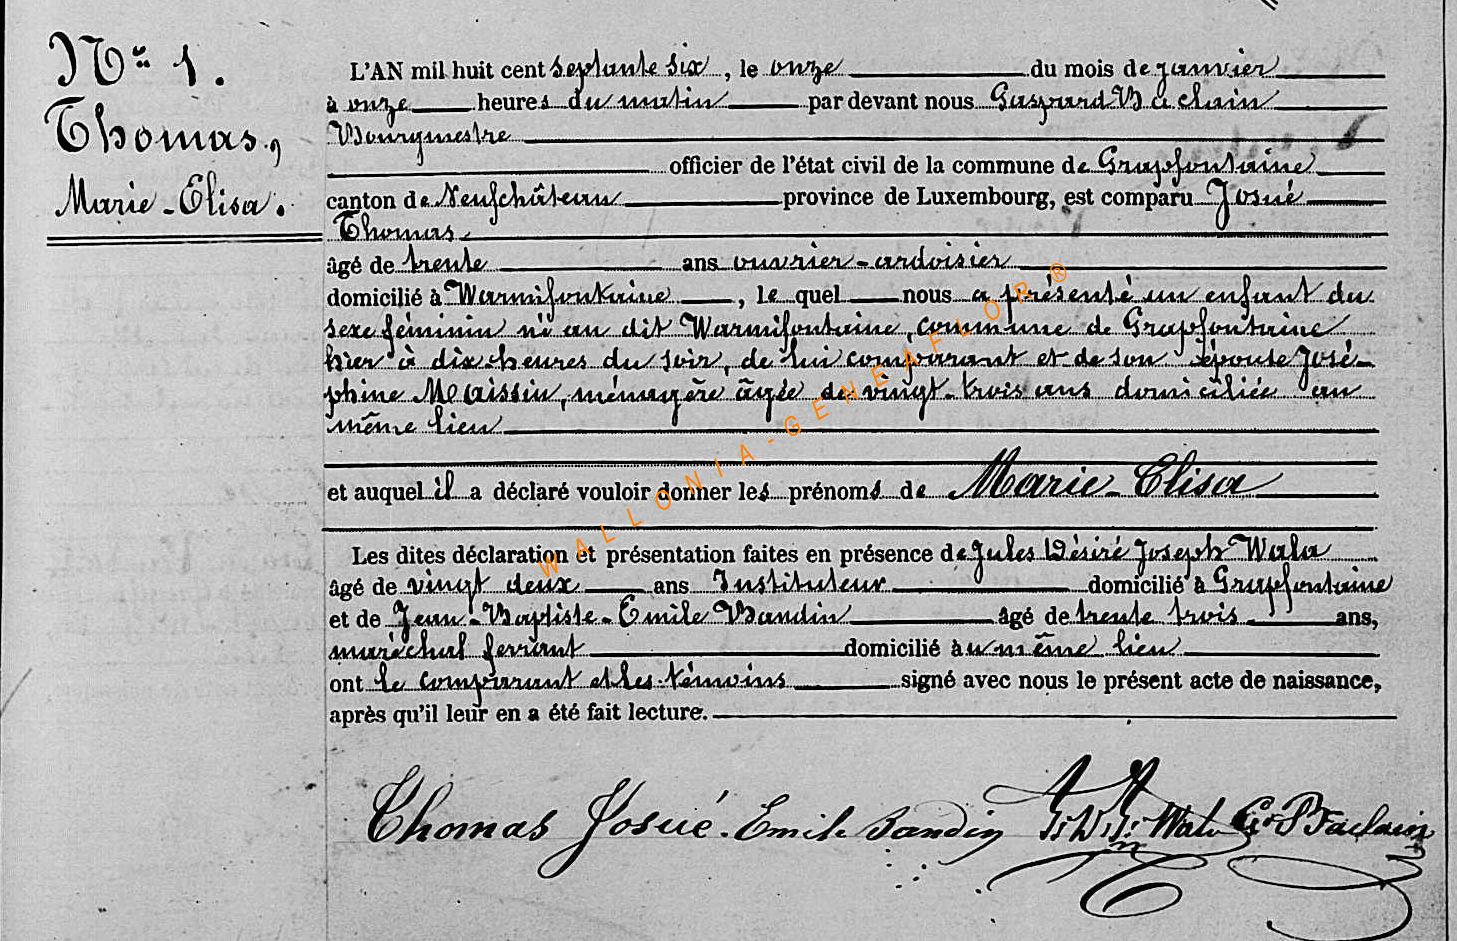 Nº 1.
Thomas,
Marie-Elisa.
L'AN mil huit cent septante six, le onze du mois de janvier
à onze heures du matin par devant nous Gaspard Baclain
Bourgmestre
officier de l'état civil de la commune de Grapfontaine
canton de Neufchâteau province de Luxembourg, est comparu Josué
Thomas
âgé de trente ans ouvrier-ardoisier
domicilié à Warmifontaine, le quel nous a présenté un enfant du
sexe féminin né au dit Warmifontaine, commune de Grapfontaine
hier à dix heures du soir, de lui comparant et de son épouse José-
phine Maissin, ménagère âgée de vingt-trois ans domiciliée au
même lieu
et auquel il a déclaré vouloir donner les prénoms de Marie-Elisa
Les dites déclaration et présentation faites en présence de Jules Désiré Joseph Wala
âgé de vingt deux ans Instituteur domicilié à Grapfontaine
et de Jean-Baptiste-Emile Bandin âgé de trente trois ans,
maréchal ferrant domicilié au même lieu
ont le comparant et les témoins signé avec nous le présent acte de naissance,
après qu'il leur en a été fait lecture.
Thomas Josué. Emile Bandin J. D. J. Wala G. Baclain
WALLONIA-GENEAFLOR®